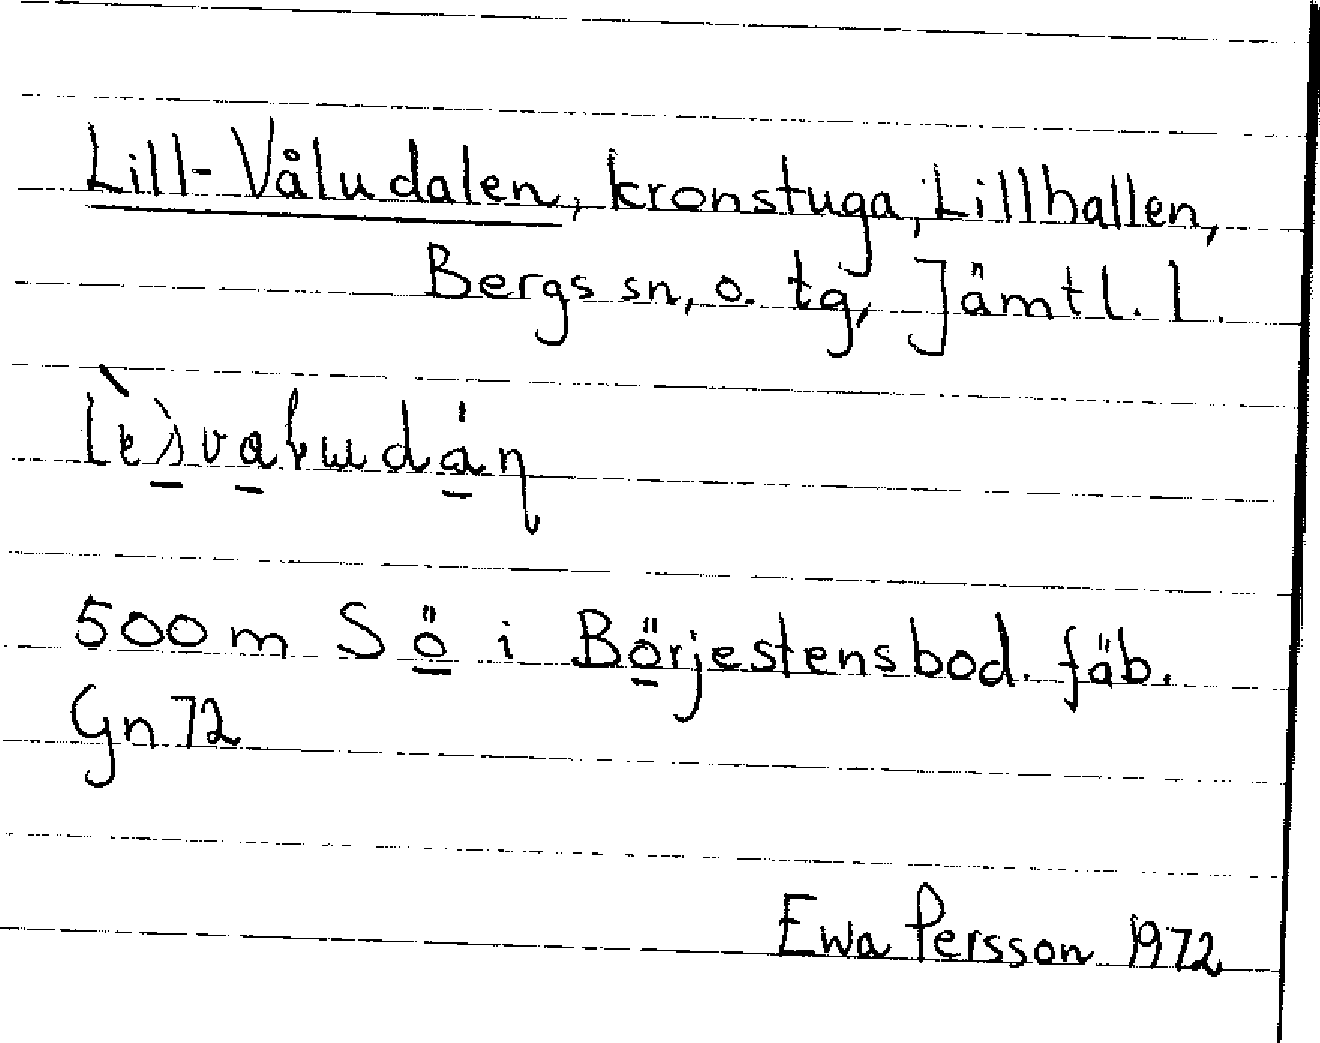 Lill-Våludalen, kronstuga, Lillhallen,
Bergs sn, o. tg, Jämtl. l.
500 m S ö i Börjestensbod. fäb.
Gn 72
Ewa Persson 1972